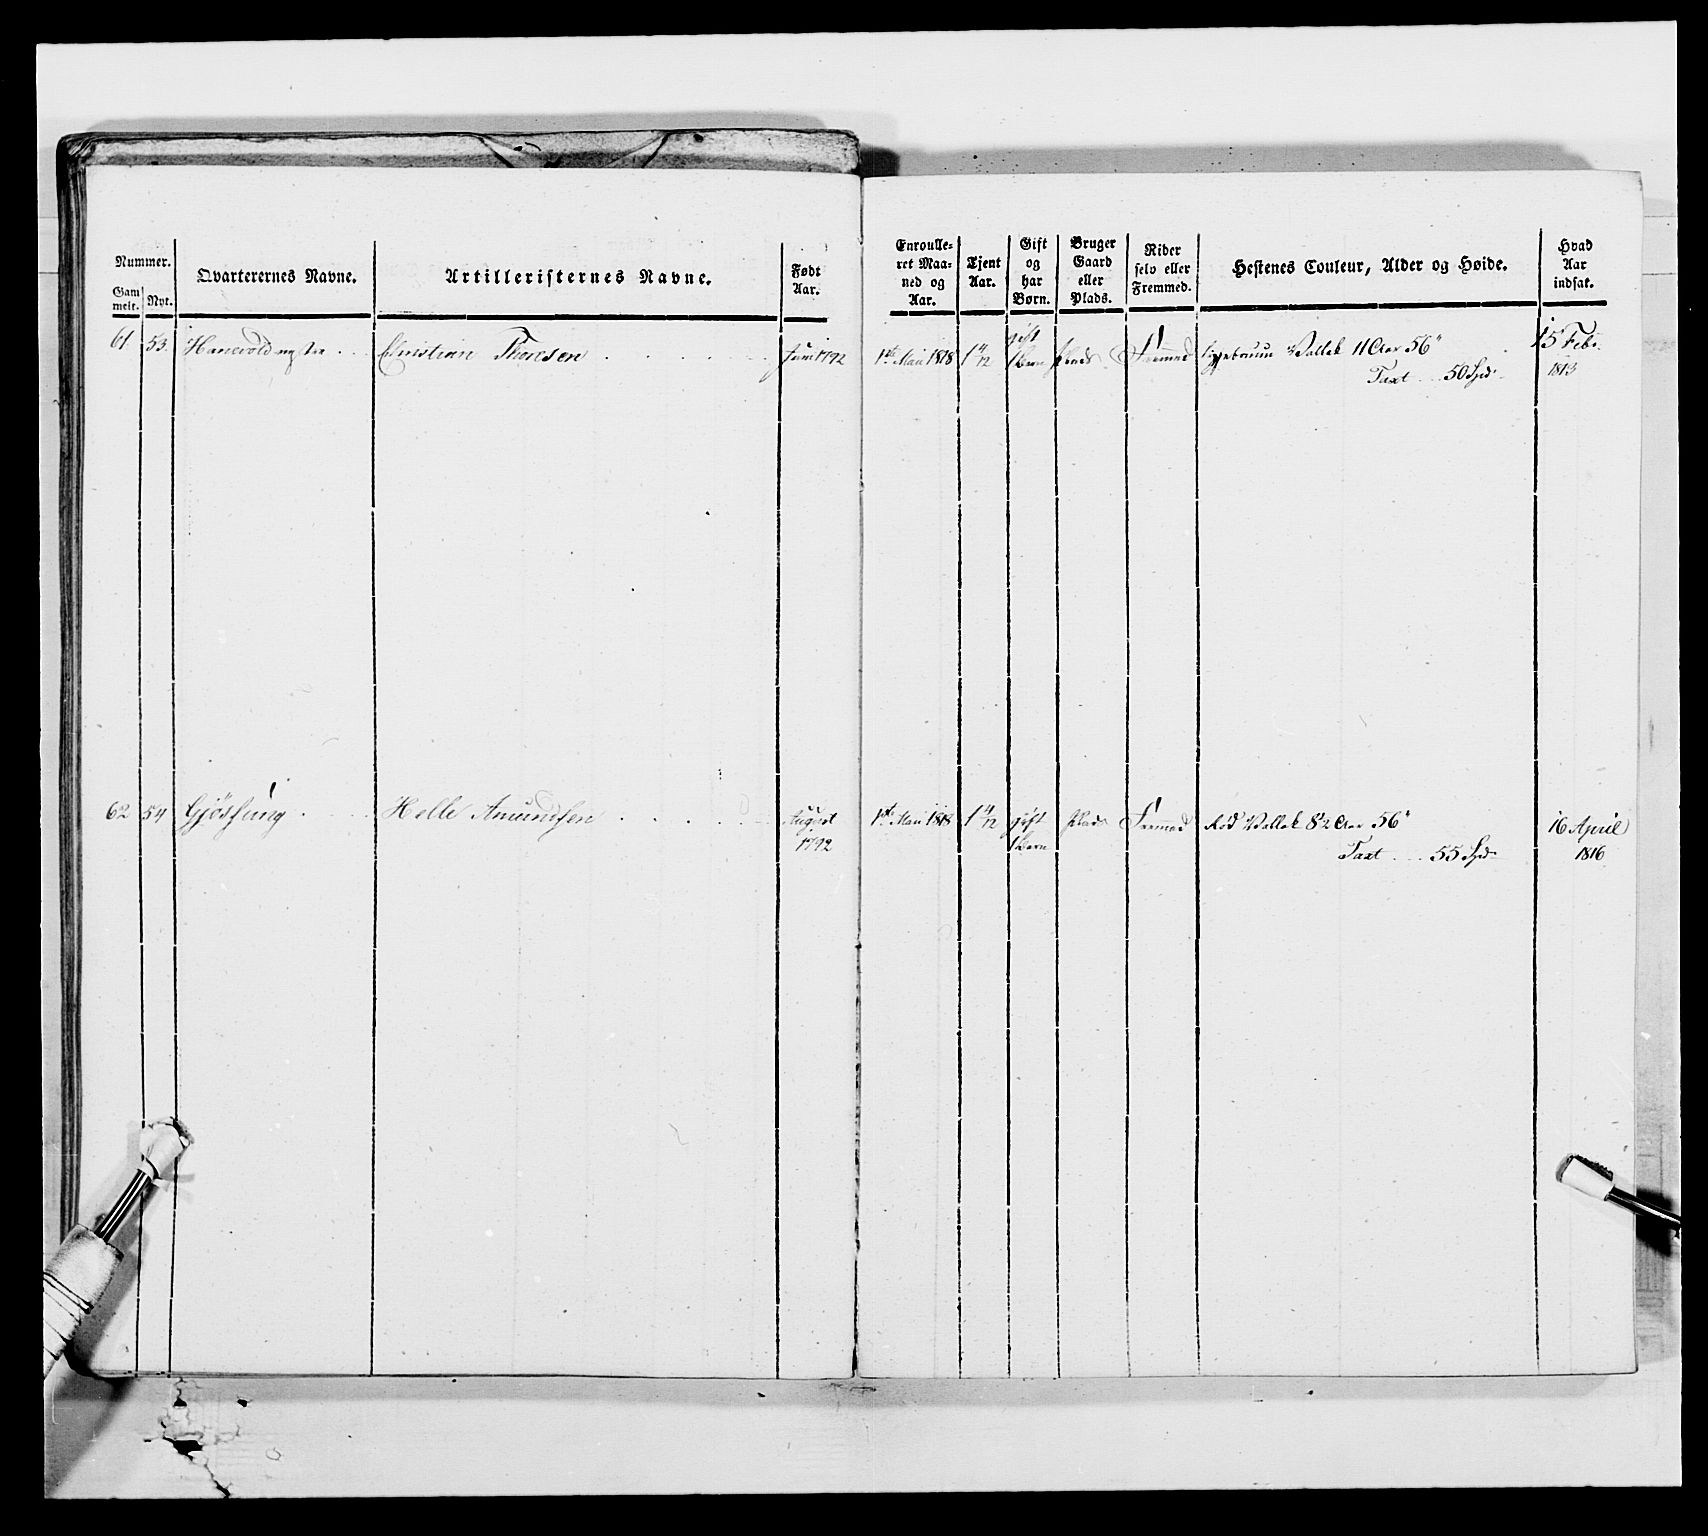 Nummer.
Gam
melt.
Nyt.
Qvarterernes Navne.
Artilleristernes Navne.
Født
Aar.
Enroulle-
ret Maa-
ned og
Aar.
Tjent
Aar.
Gift
og
har
Børn.
Bruger
Gaard
eller
Plads.
Rider
selv eller
Fremmed.
Hestenes Couleur, Alder og Høide.
Hvad
Aar
indsat.
61. 53. Christian Thoresen Juni 1792 1ste Maii 1818 1 4/12 gift
1 Barn Plads Fremmed Vallak 11 Aar 56"
Taxt 50 Spd
15 Febr.
1813
62 54 Helle Amundsen August
1792
1ste Maii 1818 1 4/12 gift
1 Barn
Plads Fremmed Rød Vallak 8½ Aar 56"
Taxt 55 Spd
16 April
1816